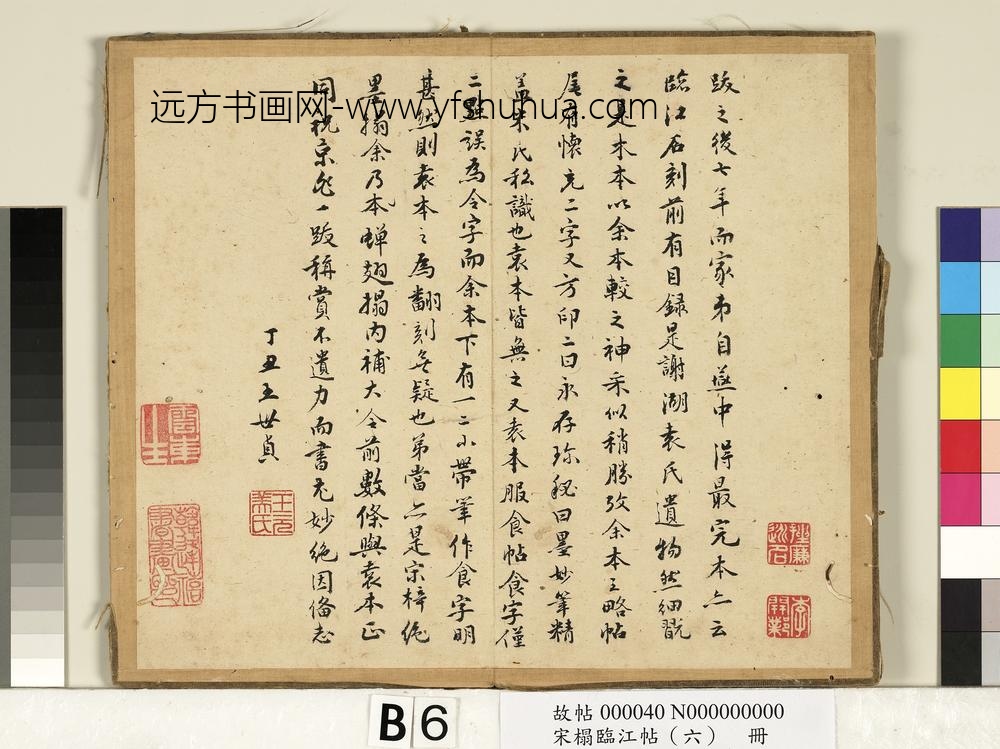 跋之後七年而家弟自燕中得最完本亦云
臨江石刻前有目録是謝湖袁氏遺物然細翫
之是木本以余本較之神采似稍勝攷余本之略帖
尾有懷充二字又方印二曰永存珎秘曰墨妙筆精
盖米氏私識也袁本皆無之又袁本服食帖食字僅
二點誤為令字而余本下有一二小帶筆作食字明
甚然則袁本之為翻刻無疑也第當亦是宋梓絶
墨搨余乃本蟬翅搨內補大令前數條與袁本正
同祝京兆一跋稱賞不遺力而書尤妙絶因偹志
丁丑王世貞
王元
美氏
李
開鄴
远方书画网-www.yfshuhua.com
B 6
故帖 000040 N000000000
宋榻臨江帖（六） 冊